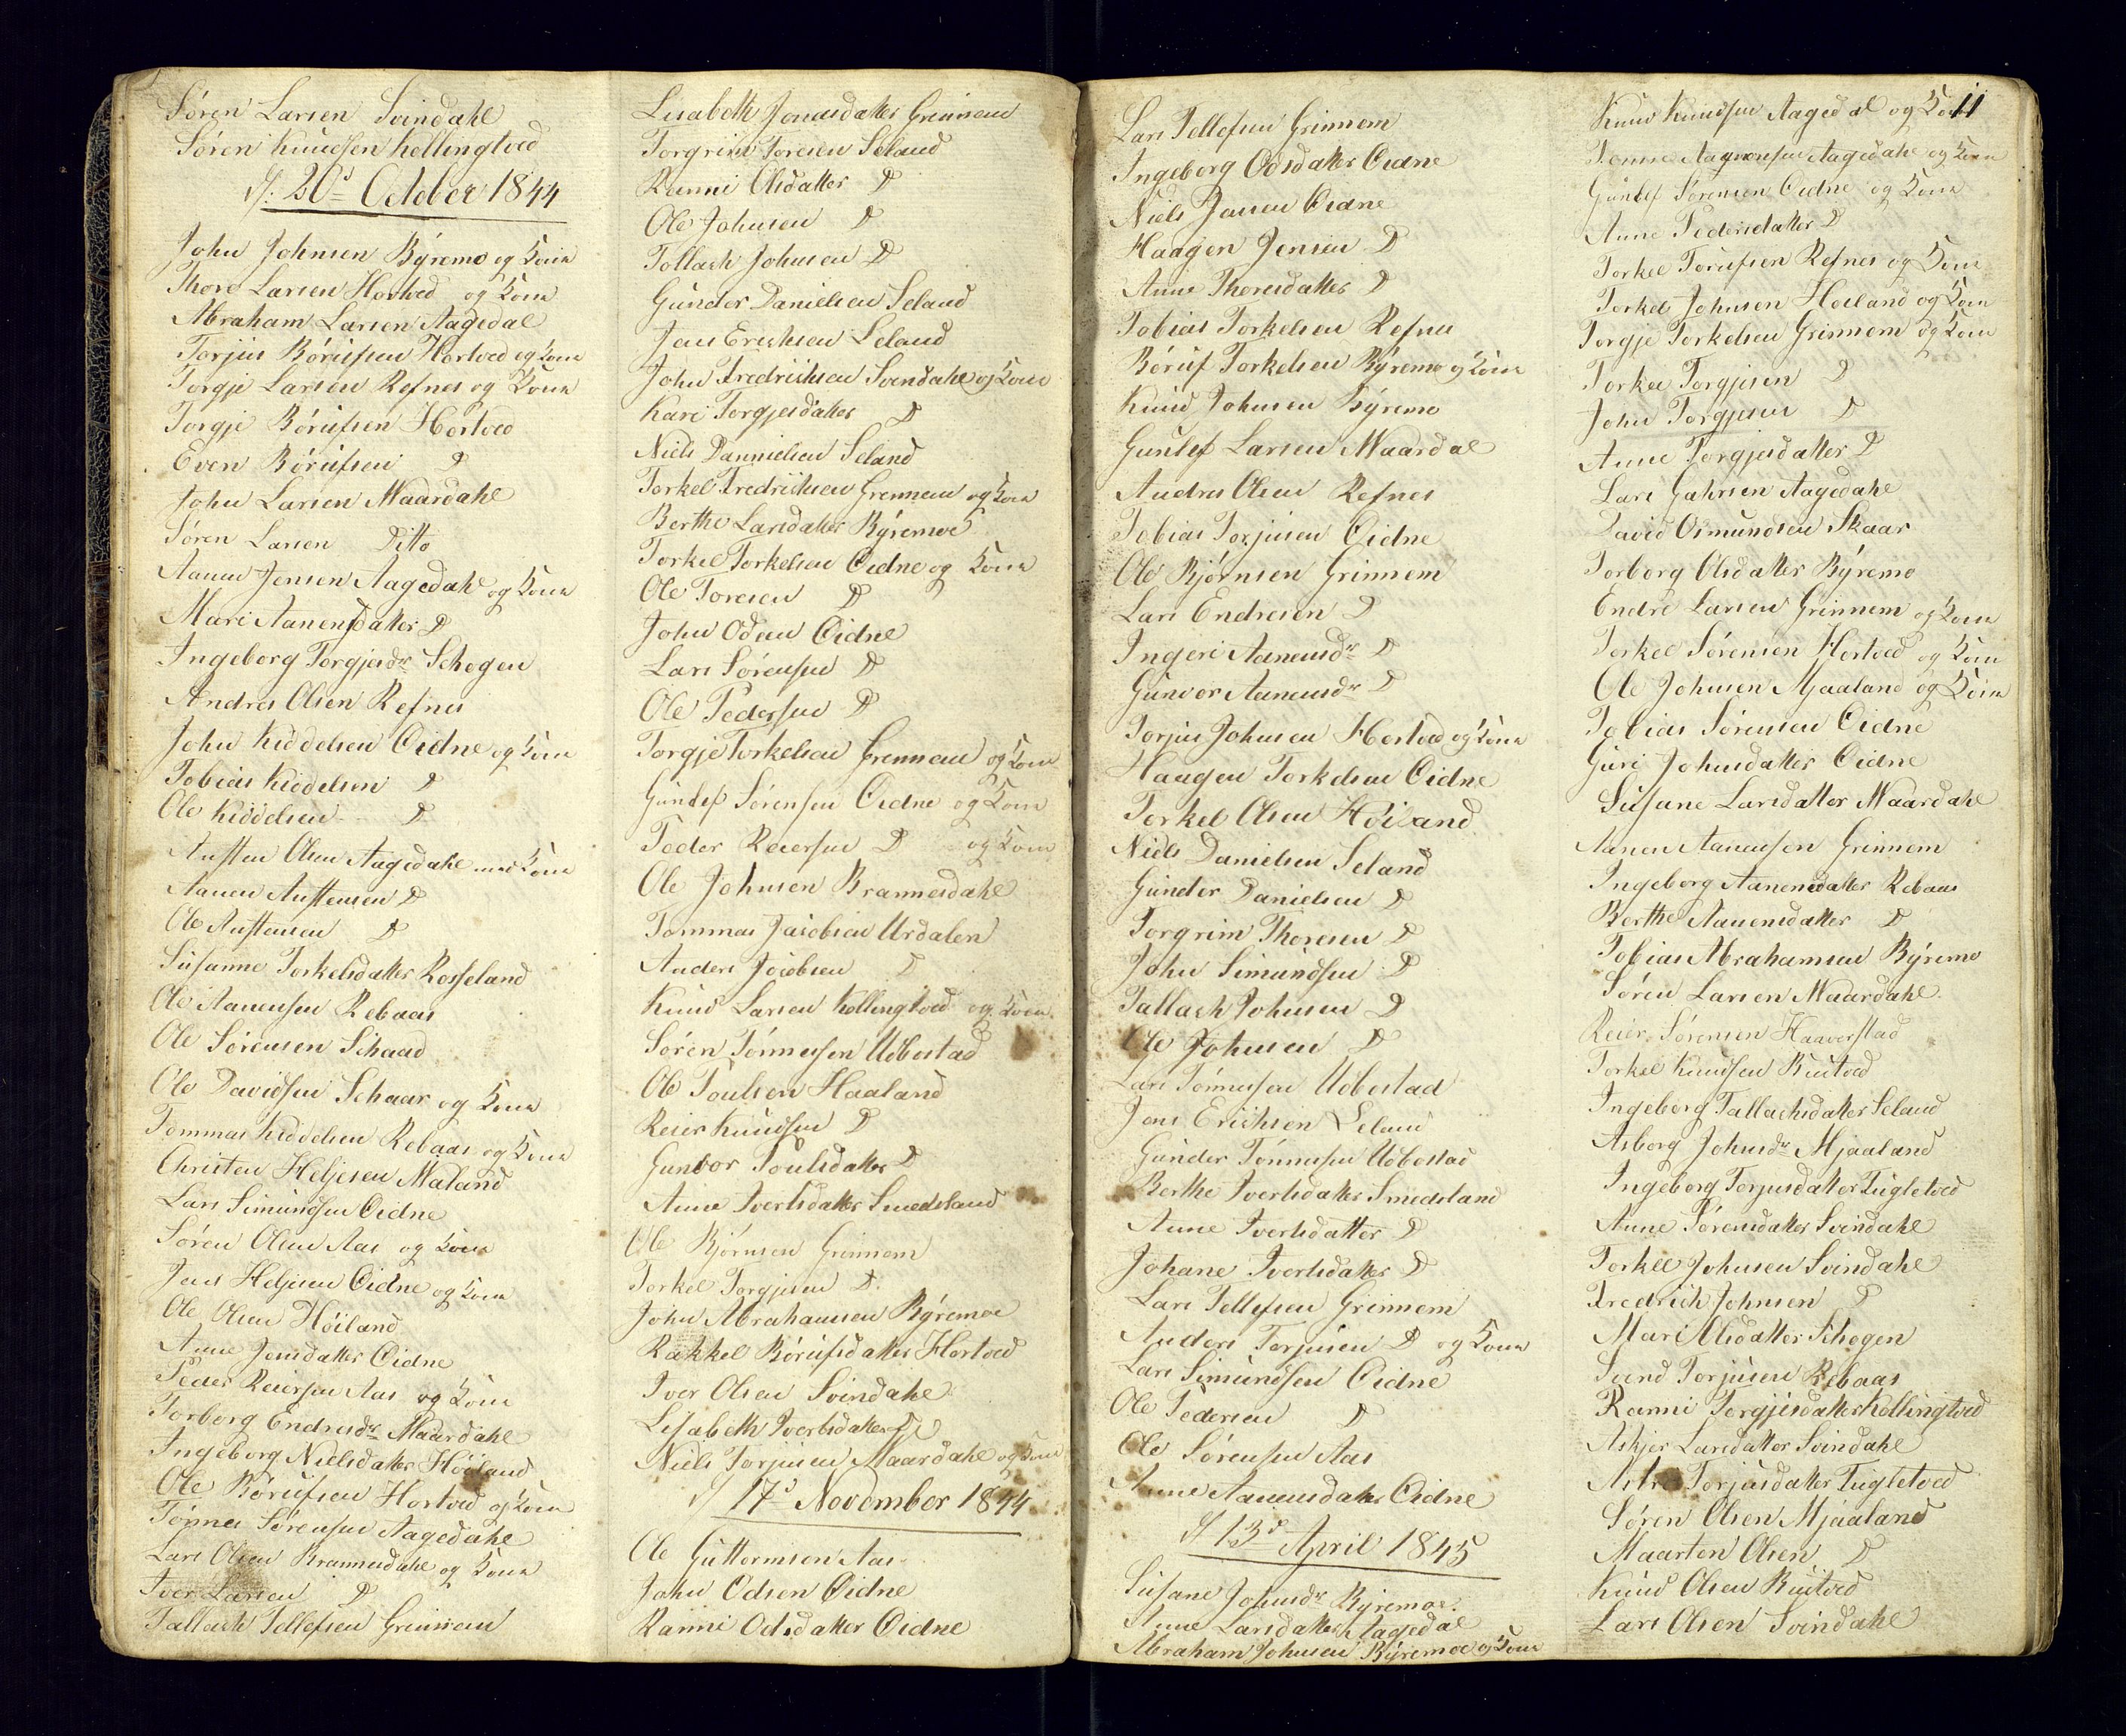 Søren Larsen Svindahl
Søren Knudsen Kollingtved
d: 20d October 1844
John Johnsen Býremo og Kone
Thore Larsen Hortved og Kone
Abraham Larsen Aagedal
Torjus Børufsen Hortved og Kone
Torgje Larsen Refnes og Kone
Torgje Børufsen Hortved
Even Børufsen D
John Larsen Maardahl
Søren Larsen Ditto
Aanen Jensen Aagedahl og Kone
Mari Aanensdatter D
Ingeborg Torgjesdr Schogen
Andres Olsen Refnes
John Kiddelsen Eidne og Kone
Tobias Kiddelsen D
Ole Kiddelsen D
Austen Olsen Aagedahl med Kone
Aanen Austensen D
Ole Austensen D
Susanne Torkelsdatter Rosseland
Ole Aanensen Rebaas
Ole Sørensen Schaar
Ole Davidsen Schaar og Kone
Tommas Kiddelsen Rebaas og Kone
Christen Heljesen Maland
Lars Simundsen Eidne
Søren Olsen Aas og Kone
Jens Heljesen Eidne og Kone
Ole Olsen Høiland
Anne Jensdatter Eidne
Peder Reiersen Aas og Kone
Torborg Endresdr Maardahl
Ingeborg Nielsdatter Høiland
Ole Børufsen Hortved og Kone
Tønnes Sørensen Aagedahl
Lars Olsen Brannesdahl og Kone
Iver Larsen D
Tallach Tellefsen Grinnem
Lisabeth Jonasdatter Grinnem
Torgrim Toresen Seland
Ranni Olsdatter D
Ole Johnsen D
Tollach Johnsen D
Gunder Danielsen Seland
Jens Erichsen Leland
John Fredrichsen Svindahl og Kone
Kari Torgjesdatter D
Niels Dannielsen Seland
Torkel Fredrichsen Grennem og Kone
Berthe Larsdatter Býremoe
Torkel Torkelsen Eidne og Kone
Ole Toresen D
John Odsen Eidne
Lars Sørensen D
Ole Pedersen D
Torgje Torkelsen Grennem og Kone
Gunlef Sørensen Eidne og Kone
Peder Reiersen D og Kone
Ole Johnsen Brannesdahl
Tommas Jacobsen Urdalen
Anders Jacobsen D
Knud Larsen Kollingtved og Kone
Søren Tønnesen Udbostad
Ole Poulsen Haaland
Reier Knudsen D
Gunvor Poulsdatter D
Anne Ivertsdatter Smedsland
Ole Bjørnsen Grinnem
Torkel Torgjesen D
John Abrahamsen Býremoe
Rakkel Børufsdatter Hortved
Iver Olsen Svindahl
Lisabeth Ivertsdatter D
Niels Torjusen Maardahl og Kone
d 17d November 1844
Ole Guttormson Aas
John Odsen Eidne
Ranni Odsdatter Eidne
Lars Tellefsen Grinnem
Ingeborg Odsdatter Eidne
Niels Jensen Eidne
Haagen Jensen D
Anne Thoresdatter D
Tobias Torkelsen Refnes
Børuf Torkelsen Býremo og Kone
Knud Johnsen Býremo
Gunlef Larsen Maardal
Andres Olsen Refnes
Tobias Torjusen Eidne
Ole Bjørnsen Grinnem
Lars Endresen D
Ingeri Aanensdr D
Gunvor Aanensdr D
Torjus Johnsen Hortved og Kone
Haagen Torkelsen Eidne
Torkel Olsen Høiland
Niels Danielsen Seland
Gunder Danielsen D
Torgrim Thoresen D
John Simundsen D
Tallach Johnsen D
Ole Johnsen D
Lars Tønnesen Udbostad
Jens Erichsen Leland
Gunder Tønnesen Udbostad
Berthe Ivertsdatter Smedsland
Anne Ivertsdatter D
Johane Ivertsdatter D
Lars Tellefsen Grinnem
Anders Torjusen D og Kone
Lars Simundsen Eidne
Ole Pedersen D
Ole Sørensen Aas
Anne Aanensdatter Eidne
d 13d April 1845
Susane Johnsdr Býremoe
Anne Larsdatter Aagedal
Abraham Johnsen Býremoe og Kone
11
Knud Knudsen Aagedal og Kone
Aagedahl og Kone
Gunlef Sørensen Eidne og Kone
Anne Pedersdatter D
Torkel Børufsen Refnes og Kone
Torkel Johnsen Høeland og Kone
Torgje Torkelsen Grinnem og Kone
Torkel Torgjesen D
John Torgjesen D
Anne Torgjesdatter D
Lars Gahrsen Aagedahl
David Osmundsen Skaar
Torborg Olsdatter Býremo
Endre Larsen Grinnem og Kone
Torkel Sørensen Hortved og Kone
Ole Johnsen Mjaaland og Kone
Tobias Sørensen Eidne
Guri Johnsdatter Eidne
Susane Larsdatter Maardahl
Aanen Aanensen Grinnem
Ingeborg Aanensdatter Rebaas
Berthe Aanensdatter D
Tobias Abrahamsen Býremo
Søren Larsen Maardahl
Reier Sørensen Haaverstad
Torkel Knudsen Buetved
Ingeborg Tallachsdatter Seland
Asborg Johnsdr Mjaaland
Ingeborg Torjusdatter Fugletved
Anne Sørensdatter Svindahl
Torkel Johnsen Svindahl
Fredrich Johnsen D
Mari Olsdatter Schogen
Svend Torjusen Rebaas
Ranni Torgjesdatter Kollingtved
Askjer Larsdatter Svindahl
Torjusdatter Fugletved
Søren Olsen Mjaaland
Maarten Olsen D
Knud Olsen Buetved
Lars Olsen Svindahl